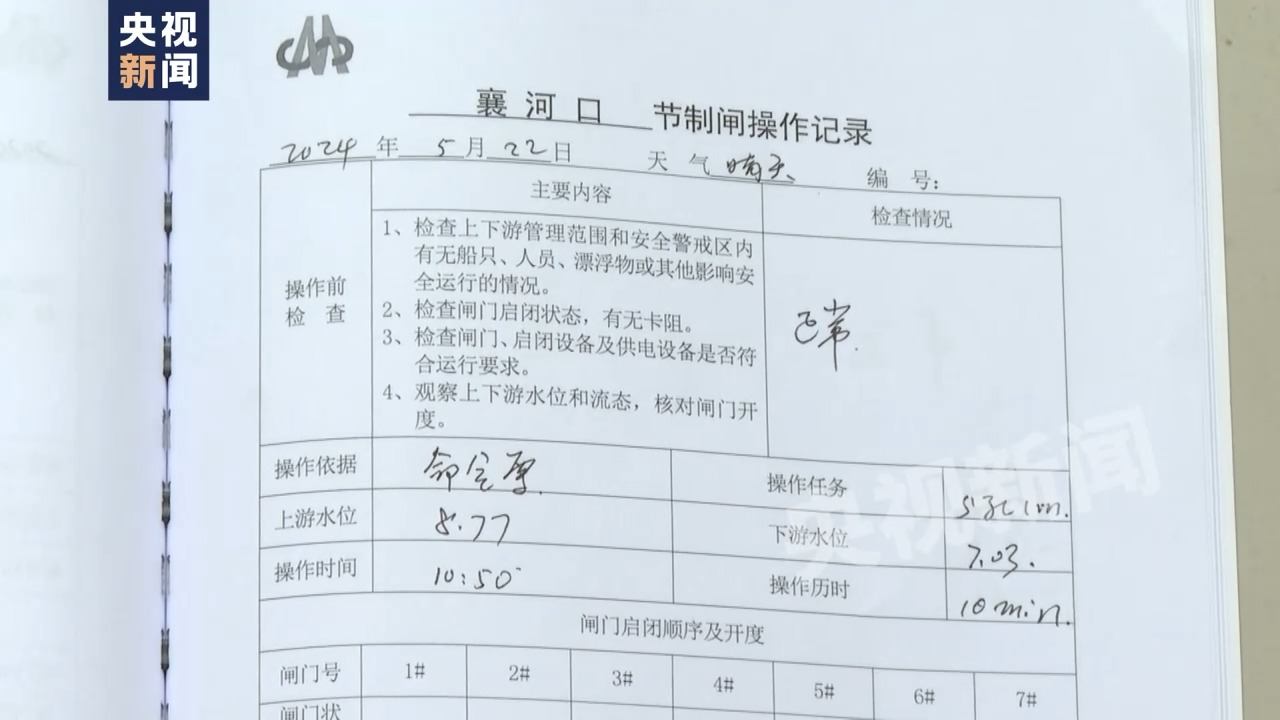 央视
新闻
襄河口 节制闸操作记录
2024年 5月 22日 天 气 晴天 编 号：
主要内容 检查情况
操作前
检 查
1、检查上下游管理范围和安全警戒区内
有无船只、人员、漂浮物或其他影响安
全运行的情况。
2、检查闸门启闭状态，有无卡阻。
3、检查闸门、启闭设备及供电设备是否符
合运行要求。
4、观察上下游水位和流态，核对闸门开
度。
正常.
操作依据 操作任务
上游水位 8.77 下游水位 7.03.
操作时间 10:50 操作历时 10min.
闸门启闭顺序及开度
闸门号 1# 2# 3# 4# 5# 6# 7#
闸门状
央视新闻